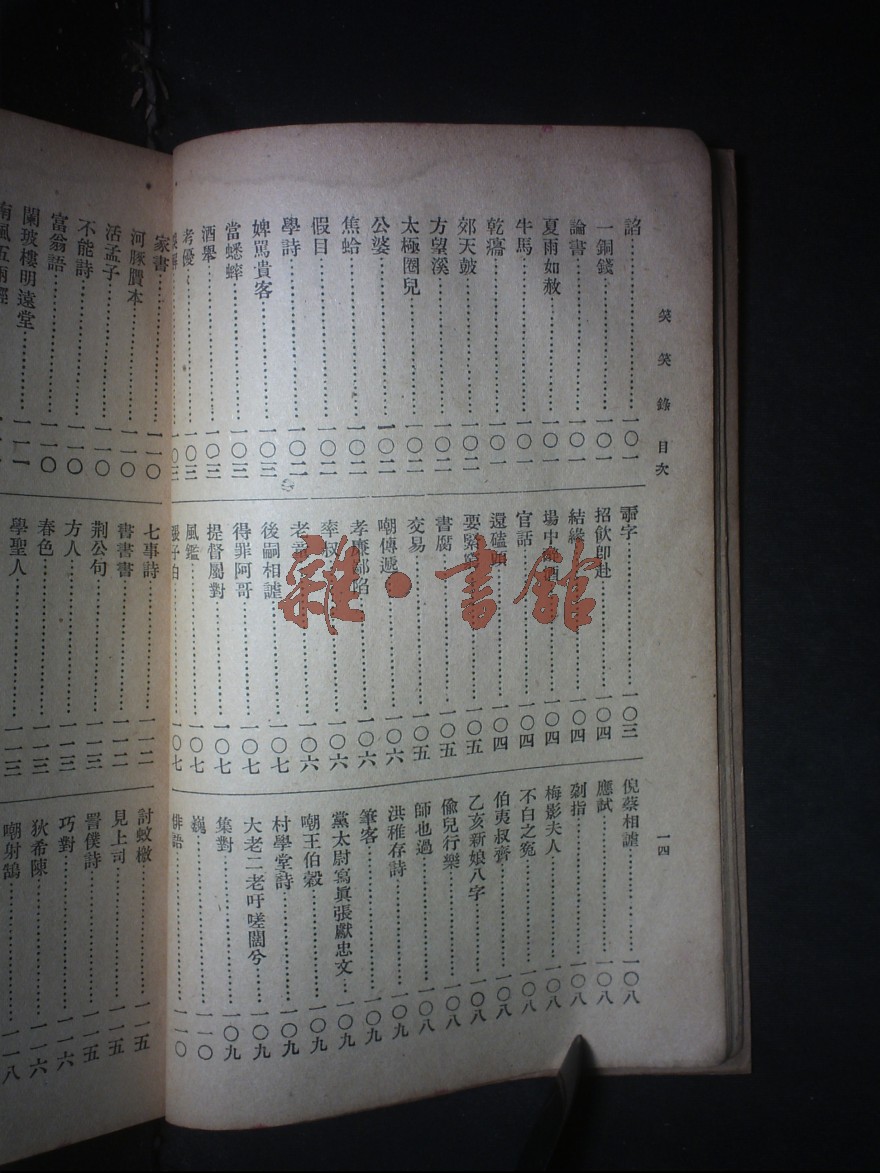 笑笑錄 目次
一四
謟……一〇一
一銅錢……一〇一
論書……一〇一
夏雨如赦……一〇一
牛馬……一〇一
乾癟……一〇一
郊天皷……一〇二
方望溪……一〇二
太極圈兒……一〇二
公婆……一〇二
焦蛤……一〇二
假目……一〇二
學詩……一〇二
婢罵貴客……一〇三
當蟋蟀……一〇三
酒舉……一〇三
考優……一〇三
招飲卽赴……一〇四
結緣……一〇四
官話……一〇四
書腐……一〇五
交易……一〇五
嘲傳遞……一〇六
後嗣相謔……一〇七
得罪阿哥……一〇七
提督屬對……一〇七
風鑑……一〇七
倪蔡相謔……一〇八
應試……一〇八
剁指……一〇八
梅影夫人……一〇八
不白之冤……一〇八
伯夷叔齊……一〇八
乙亥新娘八字……一〇八
偷兒行樂……一〇八
師也過……一〇八
洪稚存詩……一〇九
筆客……一〇九
黨太尉寫眞張獻忠文……一〇九
嘲王伯穀……一〇九
村學堂詩……一〇九
大老二老吁嗟闊兮……一〇九
集對……一〇九
巍……一一〇
俳語……一一〇
家書……一一〇
河豚贋本……一一〇
活孟子……一一〇
不能詩……一一〇
富翁語……一一〇
闌玻樓明遠堂……一一一
七事詩……一一二
書書書……一一二
荆公句……一一三
方人……一一三
春色……一一三
學聖人……一一三
討蚊檄……一一五
見上司……一一五
詈僕詩……一一五
巧對……一一六
狄希陳……一一六
嘲射鵠……一一八
雜·書館